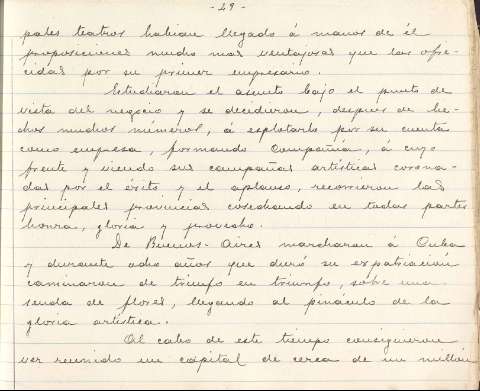 - 29 -
pales teatros habian llegado á manos de él
proposiciones mucho mas ventajosas que las ofre-
cidas por su primer empresario.
Estudiaron el asunto bajo el punto de
vista del negocio y se decidieron, despues de he-
chos muchos números, á esplotarlo por su cuenta
como empresa, formando Compañia, á cuyo
frente y viendo sus campañas artísticas corona-
das por el éxito y el aplauso, recorrieron las
principales provincias cosechando en todas partes
honra, gloria y provecho.
De Buenos-Aires marcharon á Cuba
y durante ocho años que duró su expatriación
caminaron de triunfo en triunfo, sobre una
senda de flores, llegando al pináculo de la
gloria artistica.
Al cabo de este tiempo consiguieron
ver reunido un capital de cerca de un millón